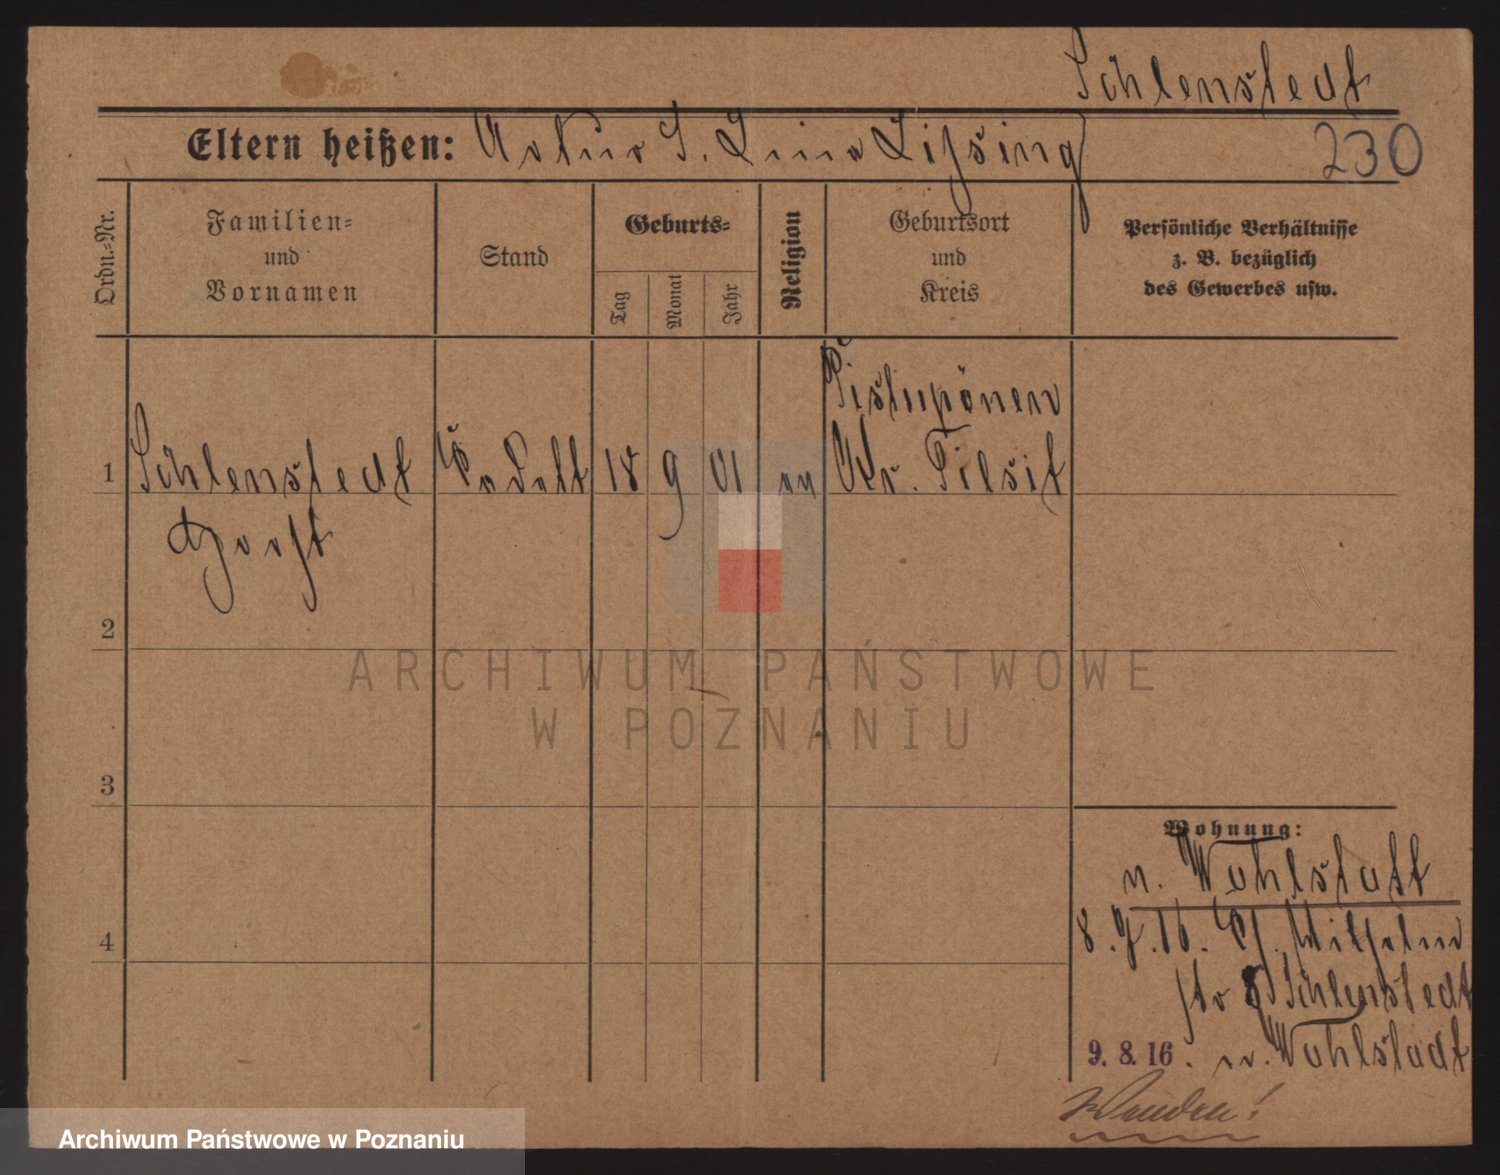 Schlenstedt
Eltern heißen: Artur S. Lina Lissing
230
Ordn.-Nr.
Familien-
und
Vornamen
Stand
Geburts-
Tag
Monat
Jahr
Religion
Geburtsort
und
Kreis
Persönliche Verhältnisse
z. B. bezüglich
des Gewerbes usw.
1
Schlenstedt
Kadett
18
9
01
Kr. Tilsit
Horst
2
3
4
Wohnung:
n. Wahlstatt
Wilhelm
str 8 Schlenstedt
9. 8. 16. n. Wahlstadt
Wenden!
ARCHIWUM PAŃSTWOWE
W POZNANIU
Archiwum Państwowe w Poznaniu